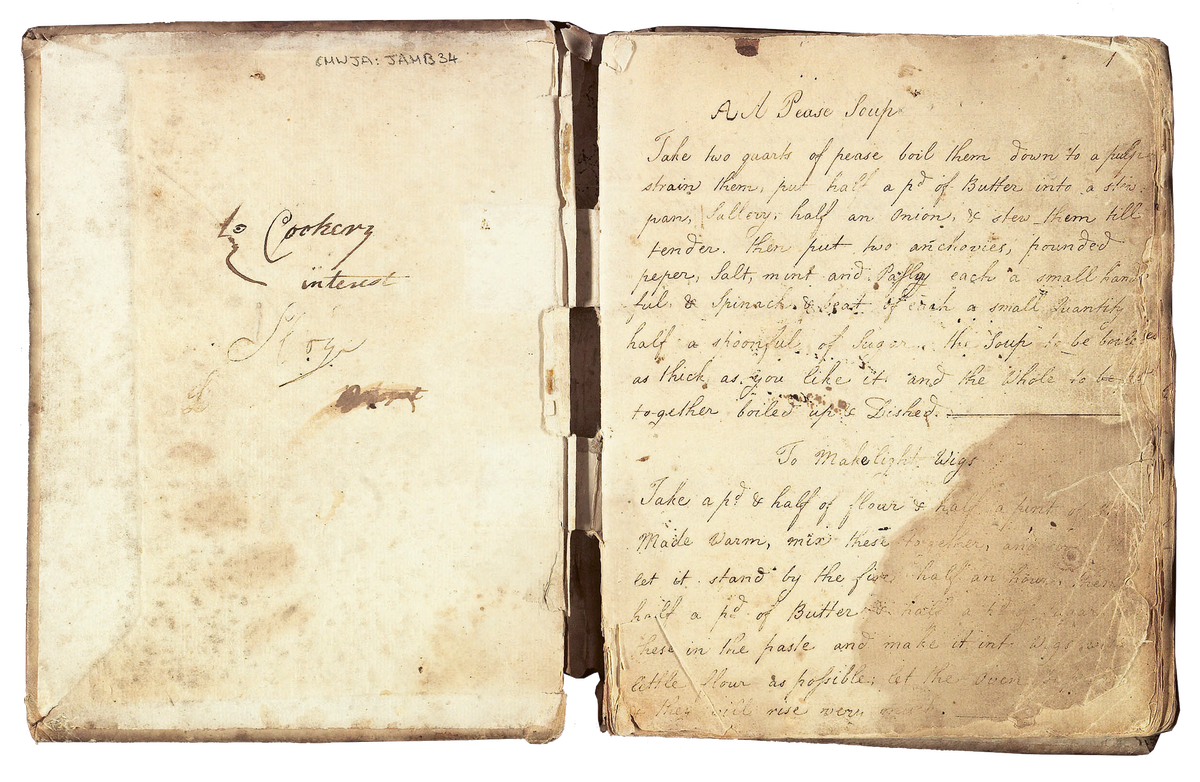 CHWJA: JAMB34
to Cookery
interest
1
A Pease Soup
Take two quarts of pease boil them down to a pulp
strain them, put half a pd of Butter into a
pan, Sallery, half an Onion, & stew them till
tender. then put two anchovies, pounded
peper, Salt, mint and Pasly each a small hand
ful & Spinach & beat of each a small Quantit
half a spoonful of Sugar. the Soup to be
as thick as you like it and the whole to be
together boiled up & Dished.
To Make light Wigs
Take a pd & half of flour & half a pint of
Made warm, mix these together,
let it stand by the fire half an hour,
half a pd of Butter
these in the paste and make it int wigs
little flour as possible; let the Oven
they will rise very